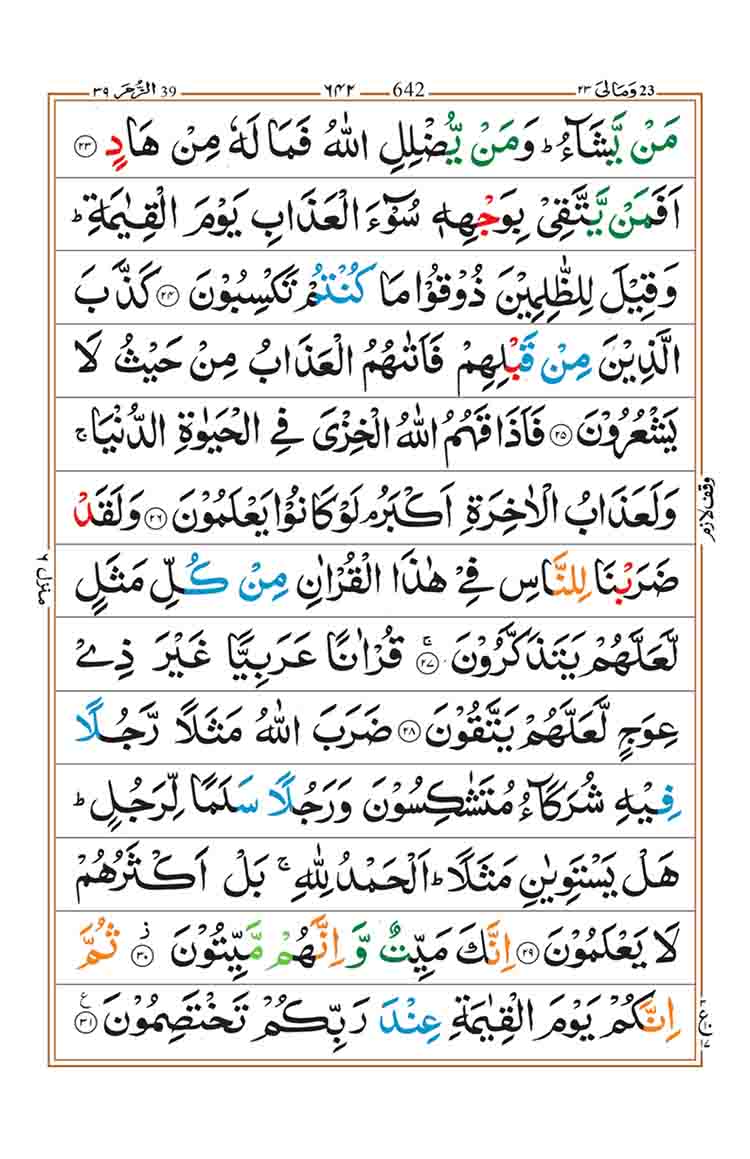 23 وَمَالِیَ ۲۳
642 ۶۴۲
39 الزُّمَر ۳۹
مَنْ یَّشَآءُ ؕ وَمَنْ یُّضْلِلِ اللّٰهُ فَمَا لَهٗ مِنْ هَادٍ ﴿۲۳﴾
اَفَمَنْ یَّتَّقِیْ بِوَجْهِهٖ سُوْٓءَ الْعَذَابِ یَوْمَ الْقِیٰمَةِ ؕ
وَقِیْلَ لِلظّٰلِمِیْنَ ذُوْقُوْا مَا كُنْتُمْ تَكْسِبُوْنَ ﴿۲۴﴾ كَذَّبَ
الَّذِیْنَ مِنْ قَبْلِهِمْ فَاَتٰىهُمُ الْعَذَابُ مِنْ حَیْثُ لَا
یَشْعُرُوْنَ ﴿۲۵﴾ فَاَذَاقَهُمُ اللّٰهُ الْخِزْیَ فِی الْحَیٰوةِ الدُّنْیَا ۚ
وَلَعَذَابُ الْاٰخِرَةِ اَكْبَرُ ۘ لَوْ كَانُوْا یَعْلَمُوْنَ ﴿۲۶﴾ وَلَقَدْ
وقف لازم
ضَرَبْنَا لِلنَّاسِ فِیْ هٰذَا الْقُرْاٰنِ مِنْ كُلِّ مَثَلٍ
منزل ۶
لَّعَلَّهُمْ یَتَذَكَّرُوْنَ ﴿۲۷﴾ۚ قُرْاٰنًا عَرَبِیًّا غَیْرَ ذِیْ
عِوَجٍ لَّعَلَّهُمْ یَتَّقُوْنَ ﴿۲۸﴾ ضَرَبَ اللّٰهُ مَثَلًا رَّجُلًا
فِیْهِ شُرَكَآءُ مُتَشٰكِسُوْنَ وَرَجُلًا سَلَمًا لِّرَجُلٍ ؕ
هَلْ یَسْتَوِیٰنِ مَثَلًا ؕ اَلْحَمْدُ لِلّٰهِ ۚ بَلْ اَكْثَرُهُمْ
لَا یَعْلَمُوْنَ ﴿۲۹﴾ اِنَّكَ مَیِّتٌ وَّاِنَّهُمْ مَّیِّتُوْنَ ﴿۳۰﴾ؗ ثُمَّ
اِنَّكُمْ یَوْمَ الْقِیٰمَةِ عِنْدَ رَبِّكُمْ تَخْتَصِمُوْنَ ﴿۳۱﴾ ع
ع ۱۷